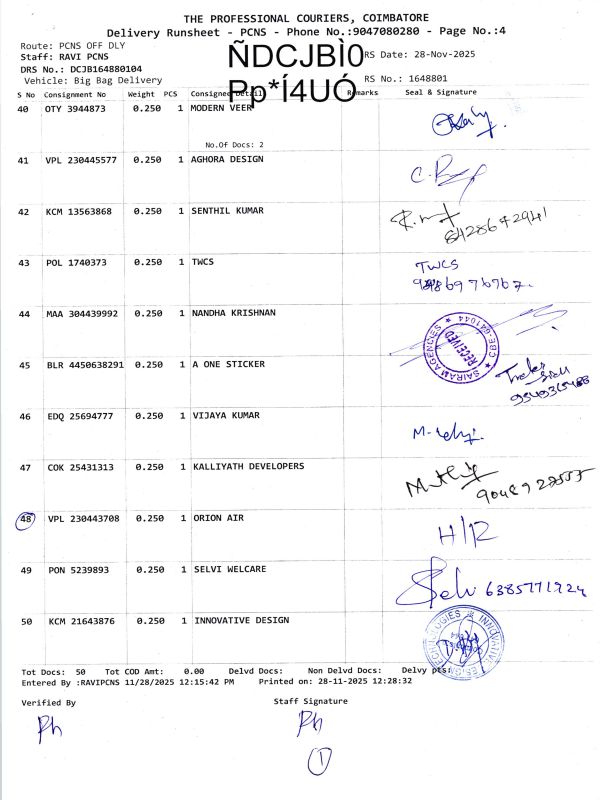 THE PROFESSIONAL COURIERS, COIMBATORE
Delivery Runsheet - PCNS - Phone No.:9047080280 - Page No.:4
Route: PCNS OFF DLY
Staff: RAVI PCNS
RS Date: 28-Nov-2025
DRS No.: DCJB164880104
Vehicle: Big Bag Delivery
RS No.: 1648801
ÑDCJBÌ0
Pp*Í4UÓ
S No Consignment No Weight PCS Consigned Detail Remarks Seal & Signature
40 OTY 3944873 0.250 1 MODERN VEER
No.Of Docs: 2
41 VPL 230445577 0.250 1 AGHORA DESIGN
42 KCM 13563868 0.250 1 SENTHIL KUMAR
43 POL 1740373 0.250 1 TWCS
TWCS
44 MAA 304439992 0.250 1 NANDHA KRISHNAN
SAIRAM AGENCIES ★ CBE-641044 ★
RECEIVED
45 BLR 4450638291 0.250 1 A ONE STICKER
46 EDQ 25694777 0.250 1 VIJAYA KUMAR
47 COK 25431313 0.250 1 KALLIYATH DEVELOPERS
48 VPL 230443708 0.250 1 ORION AIR
H/R
49 PON 5239893 0.250 1 SELVI WELCARE
Selvi 6385771924
50 KCM 21643876 0.250 1 INNOVATIVE DESIGN
Tot Docs: 50 Tot COD Amt: 0.00 Delvd Docs: Non Delvd Docs: Delvy pts:
Entered By :RAVIPCNS 11/28/2025 12:15:42 PM Printed on: 28-11-2025 12:28:32
Verified By Staff Signature
Ph Ph
1